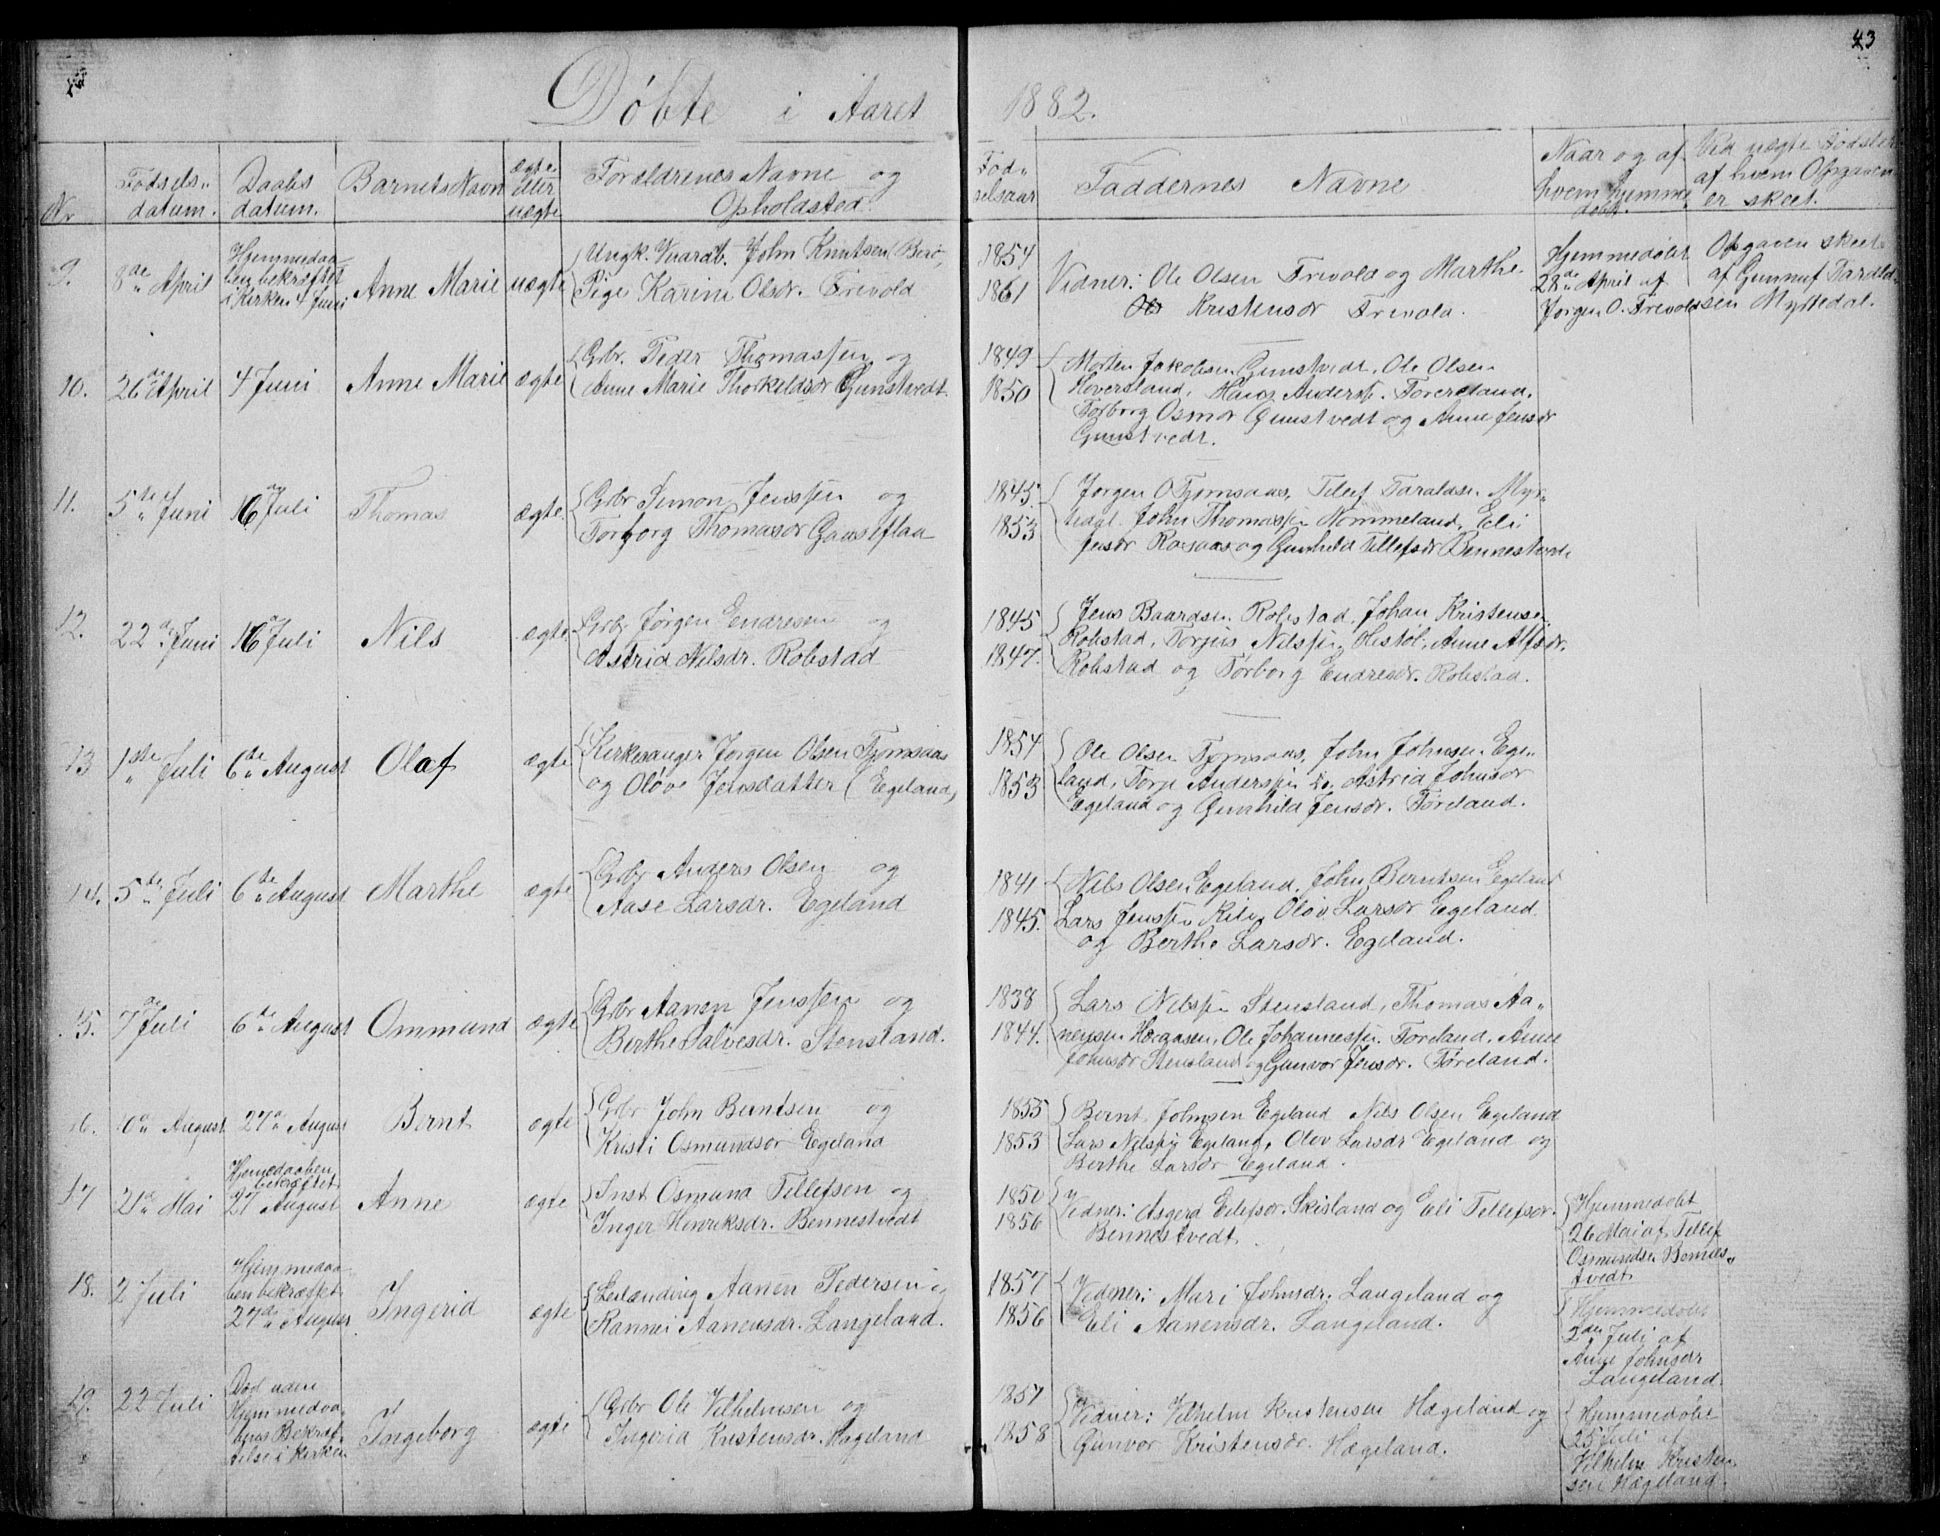 43
Døbte i Aaret 1882.
Nr
Fødsels-
datum.
Daabs
datum.
Barnets Navn
ægte
eller
uægte
Forældrenes Navne og
Opholdsted.
Fød-
selsaar
Faddernes Navne
Naar og af
hvem hjemme
døbt.
Ved uægte Fødsler
af hvem Opgaven
er skeet.
9.
8de April
Hjemmedaa-
ben bekræftet
i Kirken 4 Juni
Anne Marie
uægte
Ungk. John Knutsen
Pige Karine Olsdr. Frevold
1854
1861
Vidner: Ole Olsen Frevold og Marthe
Kristensdr Frevold.
Hjemmedøbt
28de April af
Jørgen O. Frevold
Opgaven skeet
af Gunnuf Tarald-
sen Myrtedal.
10.
26de April
4 Juni
Anne Marie
ægte
Gbr. Peder Thomassen og
Anne Marie Thorkeldsdr Gunstvedt.
1849
1850
Morten Jakobsen Gunstvedt, Ole Olsen
Hoversland, Hans Anders.
Torborg Osmdr Gunstvedt og Anne Jensdr
Gunstvedt.
11.
5te Juni
16de Juli
Thomas
ægte.
Gbr Simon Jenssen og
Torborg Thomasdr Gaaseflaa
1845.
1853
Jørgen O Tjomsaas, Tellef Taraldsen Myr-
tedal. John Thomassen Nommeland, Eli
Jensdr Rosaas og Gunhild Tellefsdr Bennestvedt
12.
22de Juni
16de Juli
Nils
ægte
Gbr Jørgen Endresen og
Astrid Nilsdr. Robstad
1845
1847.
Jens Baardsen Robstad, Johan Kristensen
Robstad, Torjus Nilssen Anne Alfsdr.
Robstad og Torborg Endresdr. Robstad.
13
1ste Juli
6te August
Olaf
ægte
Kirkesanger Jørgen Olsen Tjomsaas
og Oløve Jensdatter (Egeland)
1854
1853
Ole Olsen Tjomsaas, John Johnsen Ege-
land, Torje Anderssen do. Astrid Johnsdr
Egeland og Gunhild Jensdr. Føreland.
14.
5te Juli
6te August
Marthe
ægte
Gbr Anders Olsen og
Aase Larsdr. Egeland
1841
1845.
Nils Olsen Egeland, John Berntsen Egeland
Lars Jenssen Olov Larsdr Egeland
og Berthe Larsdr. Egeland.
15.
7de Juli
6te August
Ommund
ægte
Gbr Aanen Jenssen og
Berthe Salvesdr. Stensland.
1838
1844.
Lars Nilssen Stensland, Thomas Aa-
nensen Ole Johannessen Føreland, Anne
Johnsdr Stensland og Gunvor Jensdr. Føreland.
16.
10de August
27de August
Bernt
ægte
Gbr John Berntsen og
Kristi Osmundsdr Egeland
1855
1853
Bernt Johnsen Egeland Nils Olsen Egeland
Lars Nilssen Egeland, Olov Larsdr Egeland og
Berthe Larsdr Egeland.
17
21de Mai
Hjemedaaben
bekræftet
27 August
Anne
ægte
Inst Osmund Tellefsen og
Inger Henriksdr. Bennestvedt
1850
1856
Vidner: Asgerd Eilefsdr. Skisland og Eli Tellefsdr.
Bennestvedt
Hjemmedøbt
26 Mai af Tellef
Osmundsen Bennes-
tvedt
18.
2 Juli
Hjemmedaa-
ben bekræftet
27de August
Ingerid
ægte
Leilænding Aanen Pedersen og
Rannei Aanensdr. Langeland.
1857
1856
Vidner: Mari Johnsdr. Langeland og
Eli Aanensdr. Langeland.
Hjemmedøbt
2den Juli af
Anne Johnsdr
Langeland.
19.
22 Juli
Død uden
Hjemmedaa-
bens Bekræf-
telse i Kirken
Ingeborg
ægte
Gbr Ole Vilhelmsen og
Ingerid Kristensdr. Hægeland
1857
1858
Vidner: Vilhelm Kristensen Hægeland og
Gunvor Kristensdr. Hægeland.
Hjemmedøbt
25 Juli af
Vilhelm Kristen-
sen Hægeland.